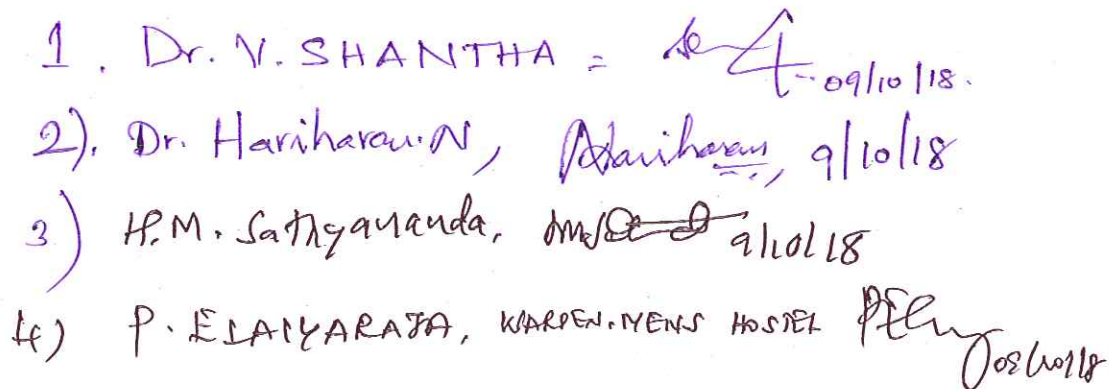 1. Dr. V. SHANTHA = 09/10/18.
2). Dr. Hariharan.N, Hariharan, 9/10/18
3) H.M. Sathyananda, 9/10/18
4) P. ELAIYARAJA, WARDEN. MENS HOSTEL